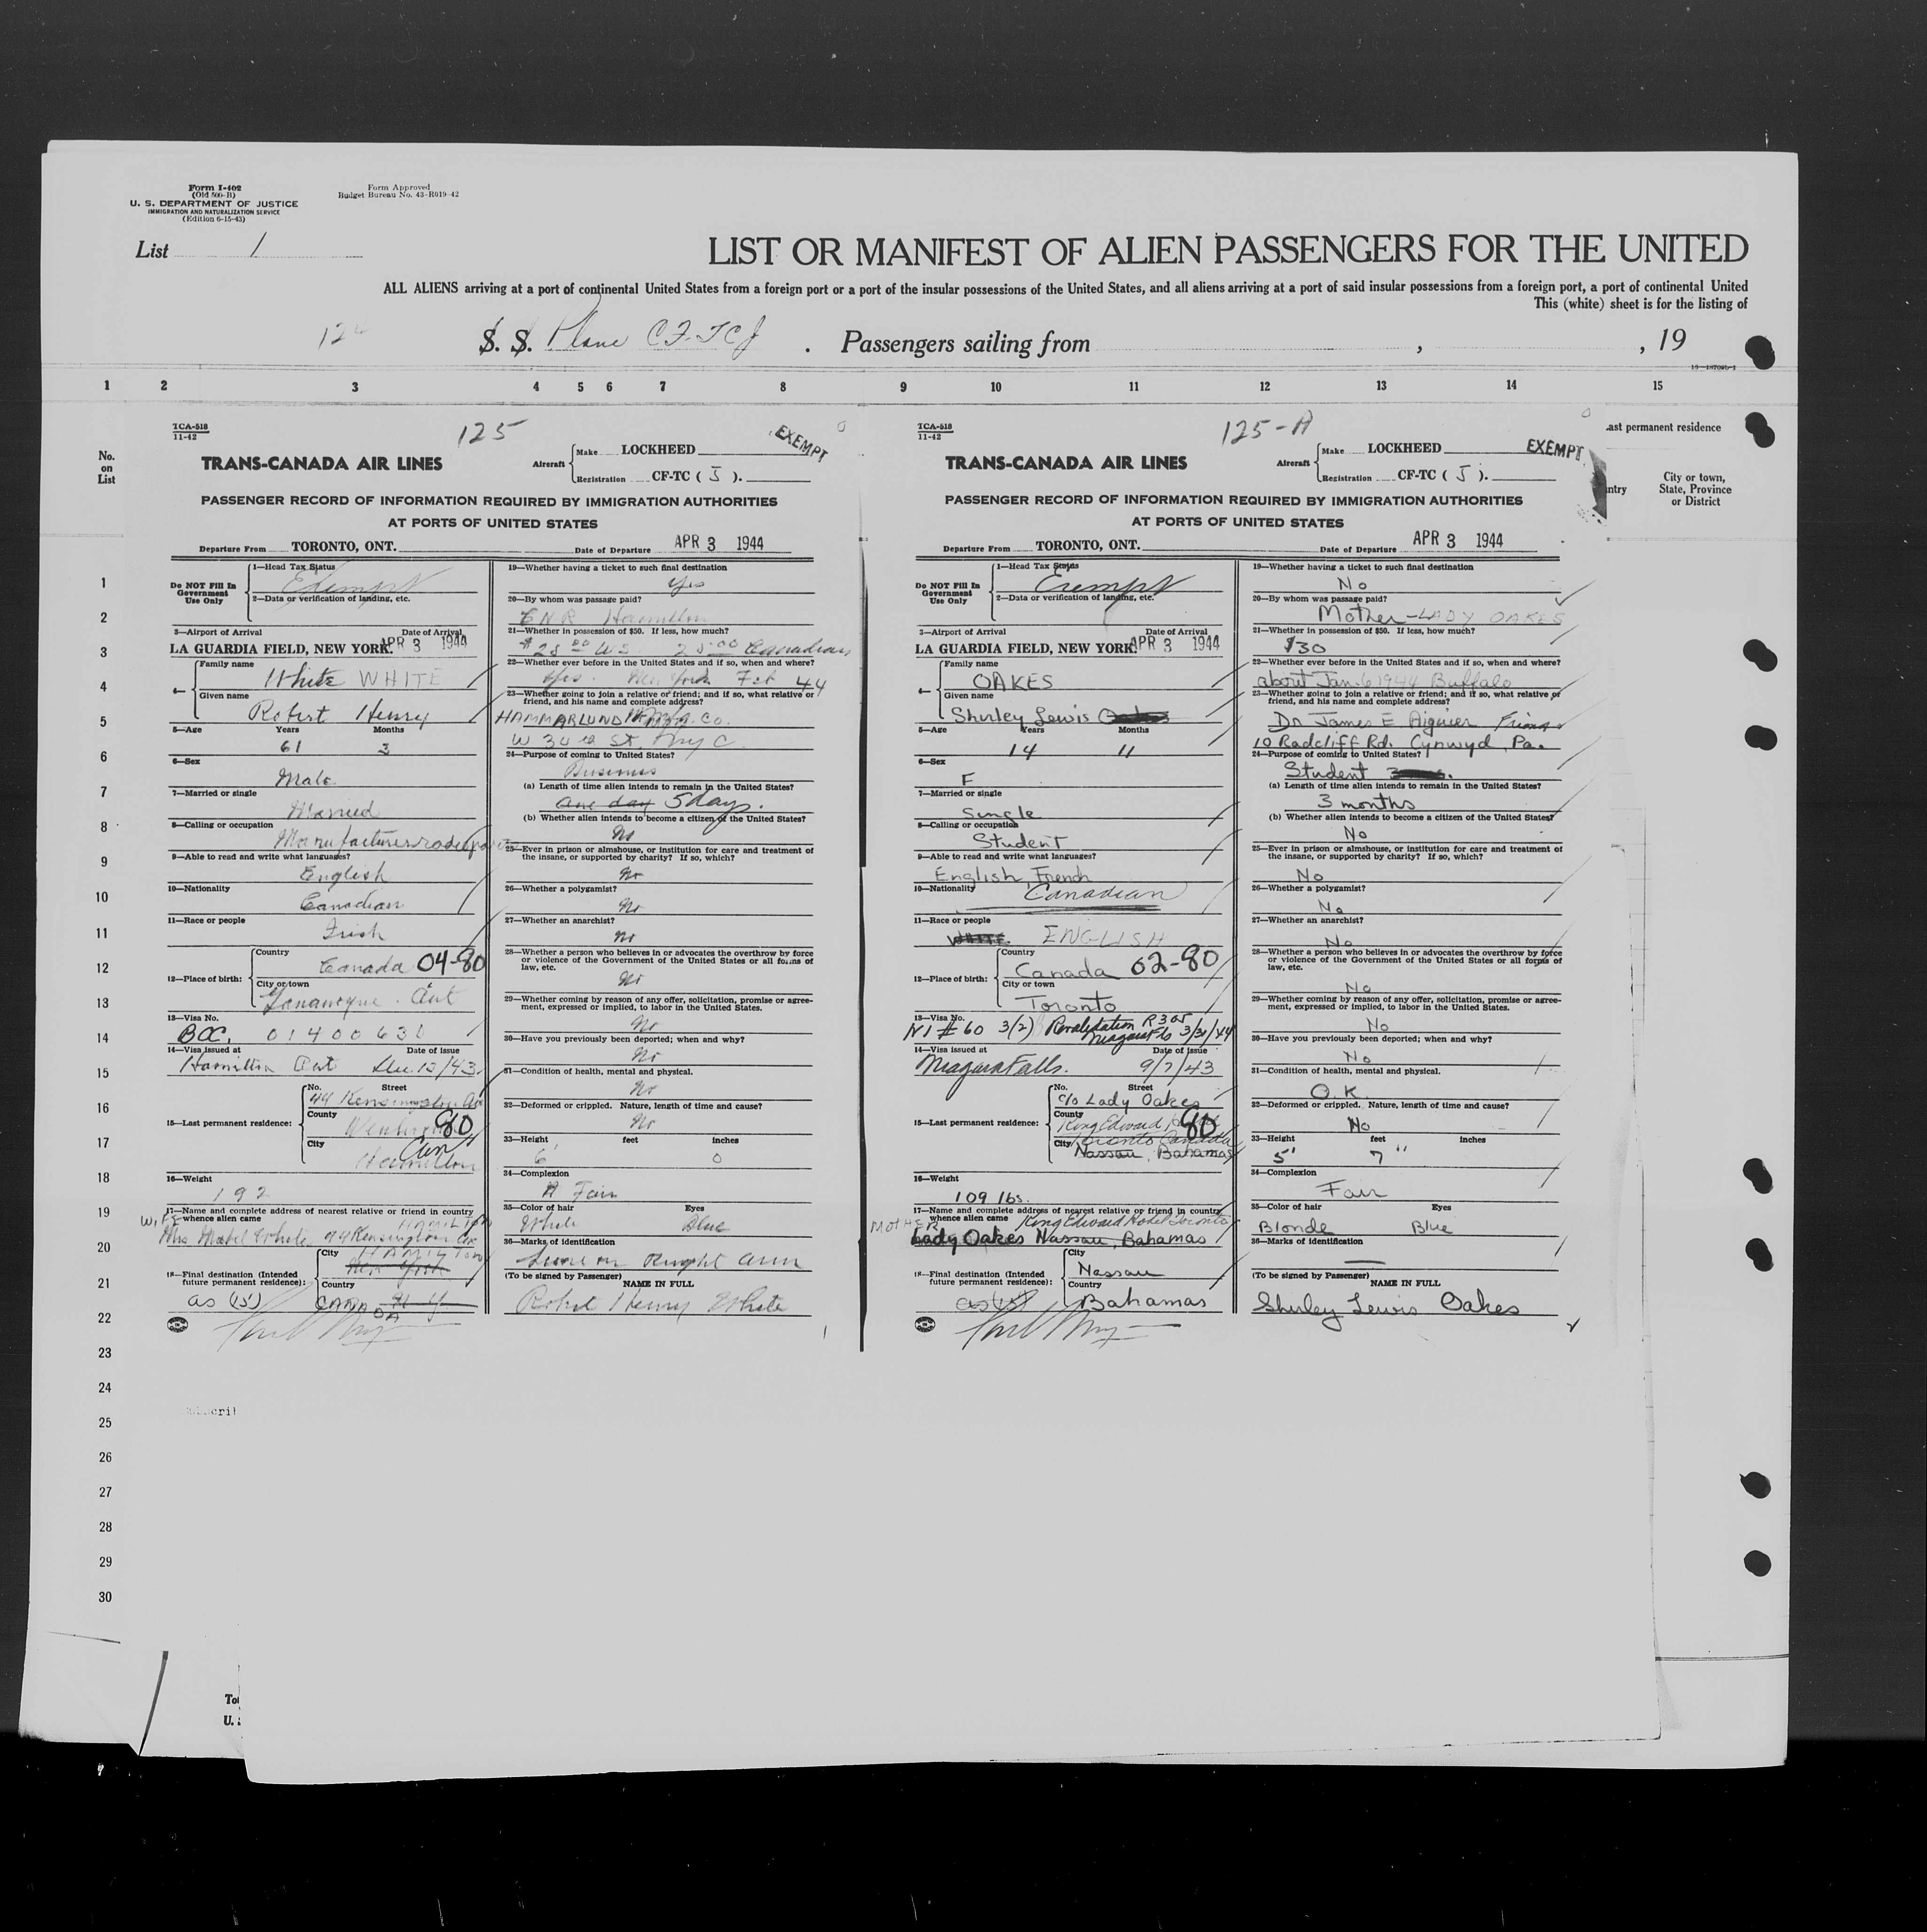 Form I-402
(Old 500-B)
U. S. DEPARTMENT OF JUSTICE
IMMIGRATION AND NATURALIZATION SERVICE
(Edition 6-15-43)
Form Approved
Budget Bureau No. 43-R019-42
List 1
LIST OR MANIFEST OF ALIEN PASSENGERS FOR THE UNITED
ALL ALIENS arriving at a port of continental United States from a foreign port or a port of the insular possessions of the United States, and all aliens arriving at a port of said insular possessions from a foreign port, a port of continental United
This (white) sheet is for the listing of
S. S. Plane CF-TCJ . Passengers sailing from , , 19
1 2 3 4 5 6 7 8 9 10 11 12 13 14 15
No.
on
List
1
2
3
4
5
6
7
8
9
10
11
12
13
14
15
16
17
18
19
20
21
22
23
24
25
26
27
28
29
30
TCA-518
11-42
125
EXEMPT
TRANS-CANADA AIR LINES
Aircraft
Make LOCKHEED
Registration CF-TC ( J ).
PASSENGER RECORD OF INFORMATION REQUIRED BY IMMIGRATION AUTHORITIES
AT PORTS OF UNITED STATES
Departure From TORONTO, ONT. Date of Departure APR 3 1944
Do NOT Fill In
Government
Use Only
1—Head Tax Status
Exempt
2—Data or verification of landing, etc.
3—Airport of Arrival Date of Arrival
LA GUARDIA FIELD, NEW YORK. APR 3 1944
4—
Family name
White WHITE
Given name
Robert Henry
5—Age Years Months
61 3
6—Sex
Male
7—Married or single
Married
8—Calling or occupation
Manufacturer
9—Able to read and write what languages?
English
10—Nationality
Canadian
11—Race or people
Irish
12—Place of birth:
Country
Canada 04-80
City or town
Gananoque Ont
13—Visa No.
BCC.
14—Visa issued at Date of issue
Hamilton Ont
15—Last permanent residence:
No. Street
44 Kensington Ave
County
80
City
Hamilton
16—Weight
192
17—Name and complete address of nearest relative or friend in country
whence alien came
WIFE HAMILTON
Mrs Mabel White 44 Kensington Ave
18—Final destination (Intended
future permanent residence):
City
HAMILTON
New York
Country
as (15) CANADA N Y
19—Whether having a ticket to such final destination
Yes
20—By whom was passage paid?
Hamilton
21—Whether in possession of $50. If less, how much?
Canadian
22—Whether ever before in the United States and if so, when and where?
Yes. New York Feb 44
23—Whether going to join a relative or friend; and if so, what relative or
friend, and his name and complete address?
HAMMARLUND Mfg. Co.
24—Purpose of coming to United States?
Business
(a) Length of time alien intends to remain in the United States?
one day 5 days.
(b) Whether alien intends to become a citizen of the United States?
No
25—Ever in prison or almshouse, or institution for care and treatment of
the insane, or supported by charity? If so, which?
No
26—Whether a polygamist?
No
27—Whether an anarchist?
No
28—Whether a person who believes in or advocates the overthrow by force
or violence of the Government of the United States or all forms of
law, etc.
No
29—Whether coming by reason of any offer, solicitation, promise or agree-
ment, expressed or implied, to labor in the United States.
No
30—Have you previously been deported; when and why?
No
31—Condition of health, mental and physical.
No
32—Deformed or crippled. Nature, length of time and cause?
No
33—Height feet inches
6 0
34—Complexion
Fair
35—Color of hair Eyes
White Blue
36—Marks of identification
(To be signed by Passenger) NAME IN FULL
Robert Henry White
TCA-518
11-42
125-A
EXEMPT
TRANS-CANADA AIR LINES
Aircraft
Make LOCKHEED
Registration CF-TC ( J ).
PASSENGER RECORD OF INFORMATION REQUIRED BY IMMIGRATION AUTHORITIES
AT PORTS OF UNITED STATES
Departure From TORONTO, ONT. Date of Departure APR 3 1944
Do NOT Fill In
Government
Use Only
1—Head Tax Status
Exempt
2—Data or verification of landing, etc.
3—Airport of Arrival Date of Arrival
LA GUARDIA FIELD, NEW YORK. APR 3 1944
4—
Family name
OAKES
Given name
Shirley Lewis
5—Age Years Months
14 11
6—Sex
F
7—Married or single
Single
8—Calling or occupation
Student
9—Able to read and write what languages?
English, French
10—Nationality
Canadian
11—Race or people
ENGLISH
12—Place of birth:
Country
Canada 02-80
City or town
Toronto
13—Visa No.
NI # 60 3(2) Revalidation R 305
Niagara Fls 3/31/44
14—Visa issued at Date of issue
Niagara Falls. 9/7/43
15—Last permanent residence:
No. Street
c/o Lady Oakes
County
King Edward 80
City Toronto Canada
Nassau, Bahamas
16—Weight
109 lbs.
17—Name and complete address of nearest relative or friend in country
whence alien came
MOTHER King Edward Hotel Toronto
Lady Oakes Nassau, Bahamas
18—Final destination (Intended
future permanent residence):
City
Nassau
Country
as (15) Bahamas
19—Whether having a ticket to such final destination
No
20—By whom was passage paid?
Mother - LADY OAKES
21—Whether in possession of $50. If less, how much?
$30
22—Whether ever before in the United States and if so, when and where?
about Jan. 6 1944 Buffalo
23—Whether going to join a relative or friend; and if so, what relative or
friend, and his name and complete address?
Dr James E Aiguier Friend
10 Radcliff Rd. Cynwyd, Pa.
24—Purpose of coming to United States?
Student
(a) Length of time alien intends to remain in the United States?
3 months
(b) Whether alien intends to become a citizen of the United States?
No
25—Ever in prison or almshouse, or institution for care and treatment of
the insane, or supported by charity? If so, which?
No
26—Whether a polygamist?
No
27—Whether an anarchist?
No
28—Whether a person who believes in or advocates the overthrow by force
or violence of the Government of the United States or all forms of
law, etc.
No
29—Whether coming by reason of any offer, solicitation, promise or agree-
ment, expressed or implied, to labor in the United States.
No
30—Have you previously been deported; when and why?
No
31—Condition of health, mental and physical.
O.K.
32—Deformed or crippled. Nature, length of time and cause?
No
33—Height feet inches
5' 7"
34—Complexion
Fair
35—Color of hair Eyes
Blonde Blue
36—Marks of identification
(To be signed by Passenger) NAME IN FULL
Shirley Lewis Oakes
ast permanent residence
ntry
City or town,
State, Province
or District
U.